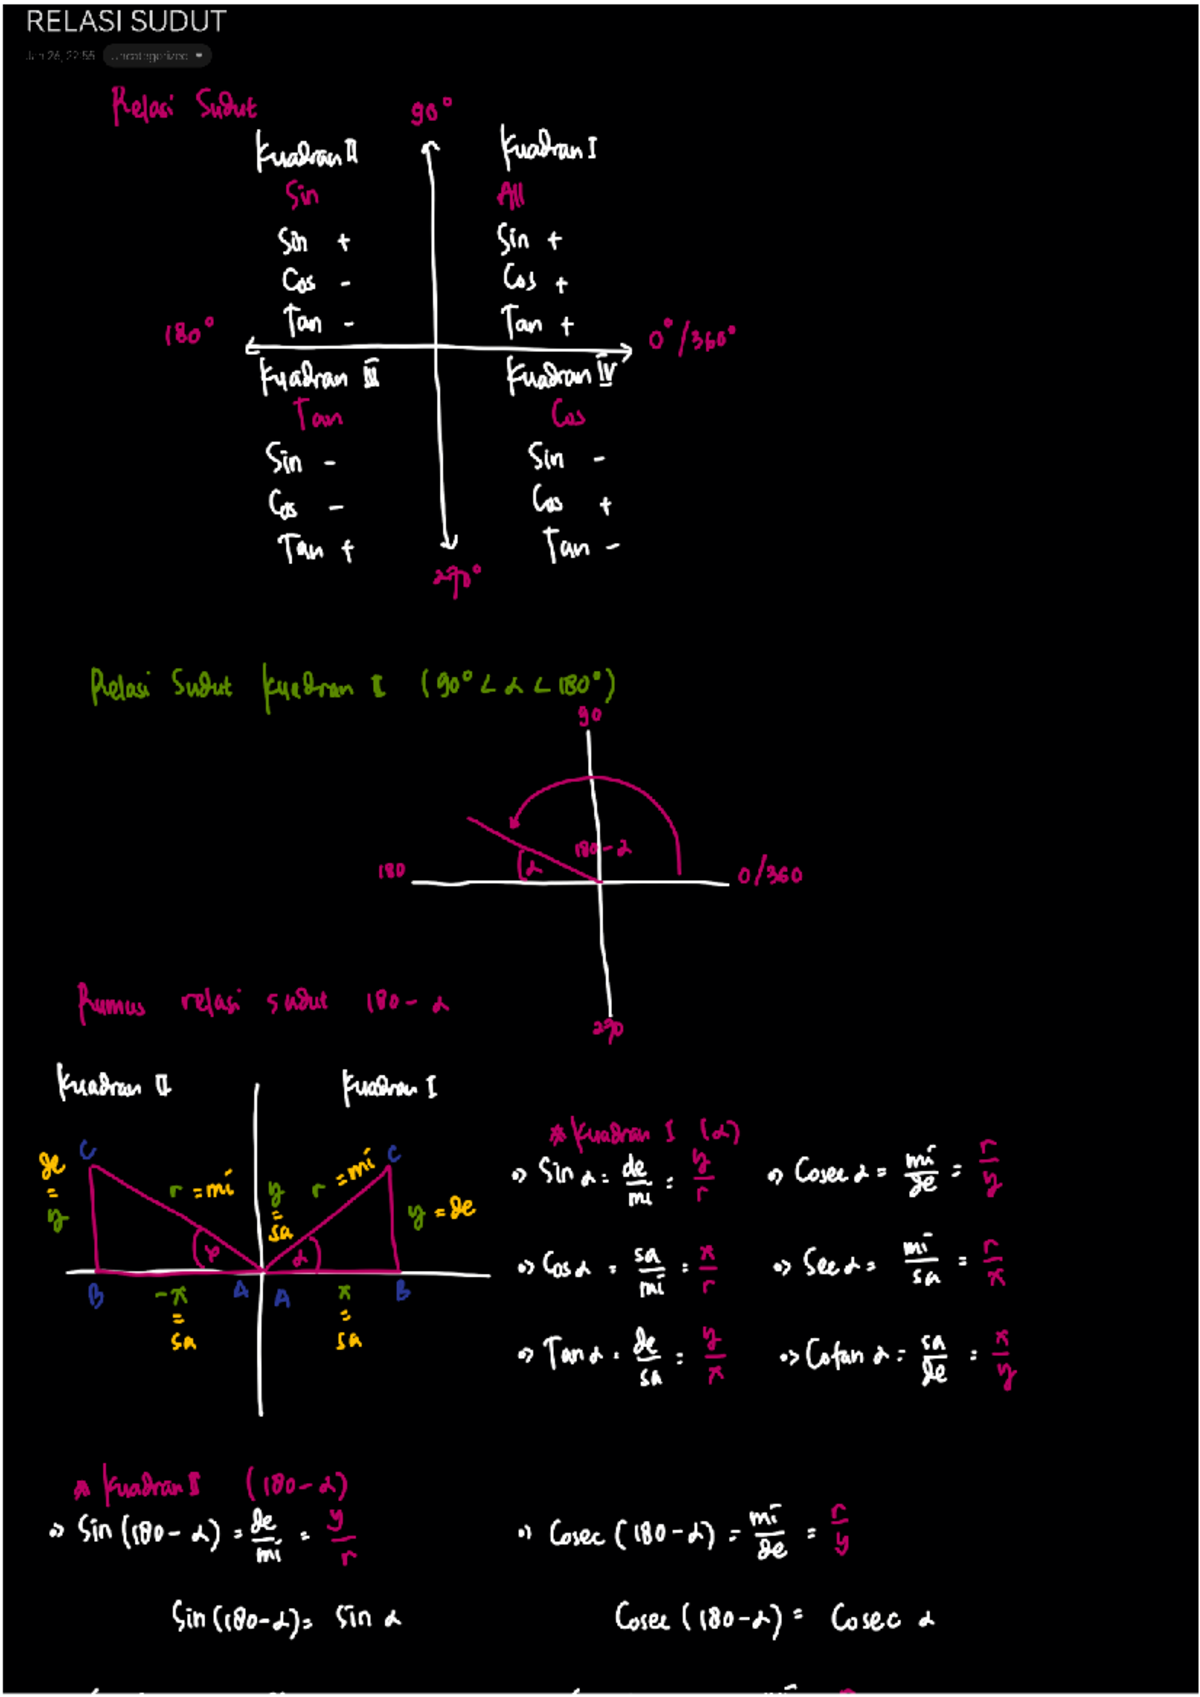 RELASI SUDUT
Jan 26, 22:55 Uncategorized
Relasi Sudut
90°
Kuadran II
Kuadran I
Sin
All
Sin +
Sin +
Cos -
Cos +
Tan -
Tan +
180°
0°/360°
Kuadran III
Kuadran IV
Tan
Cos
Sin -
Sin -
Cos -
Cos +
Tan +
Tan -
270°
Relasi Sudut Kuadran II (90° < α < 180°)
90
180-α
α
180
0/360
270
Rumus relasi sudut 180-α
Kuadran II
Kuadran I
C
C
de = y
r = mi
y = sa
r = mi
y = de
α
α
B
-x = sa
A
A
x = sa
B
* Kuadran I (α)
=> Sin α = de/mi = y/r
=> Cosec α = mi/de = r/y
=> Cos α = sa/mi = x/r
=> Sec α = mi/sa = r/x
=> Tan α = de/sa = y/x
=> Cotan α = sa/de = x/y
* Kuadran II (180-α)
=> Sin (180-α) = de/mi = y/r
=> Cosec (180-α) = mi/de = r/y
Sin (180-α) = Sin α
Cosec (180-α) = Cosec α